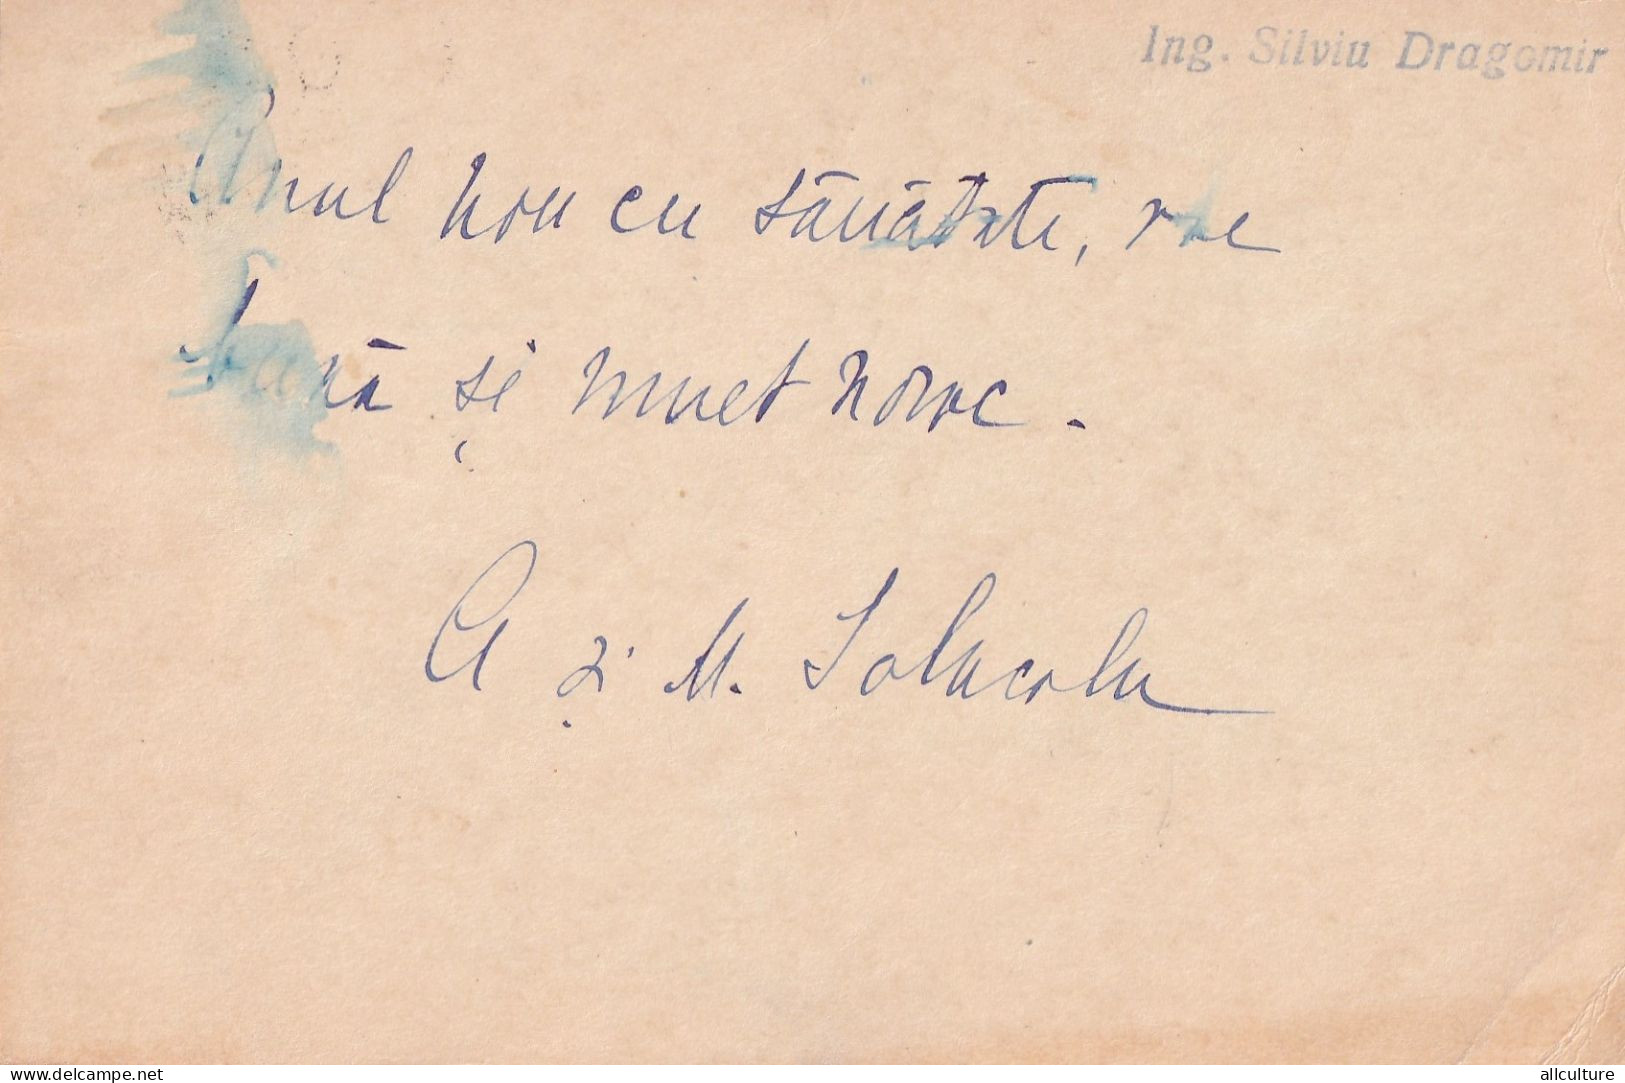 Ing. Silviu Dragomir
Anul nou cu sănătate, voe
bună și mult noroc.
A și M. Solacolu
delcampe.net
allculture